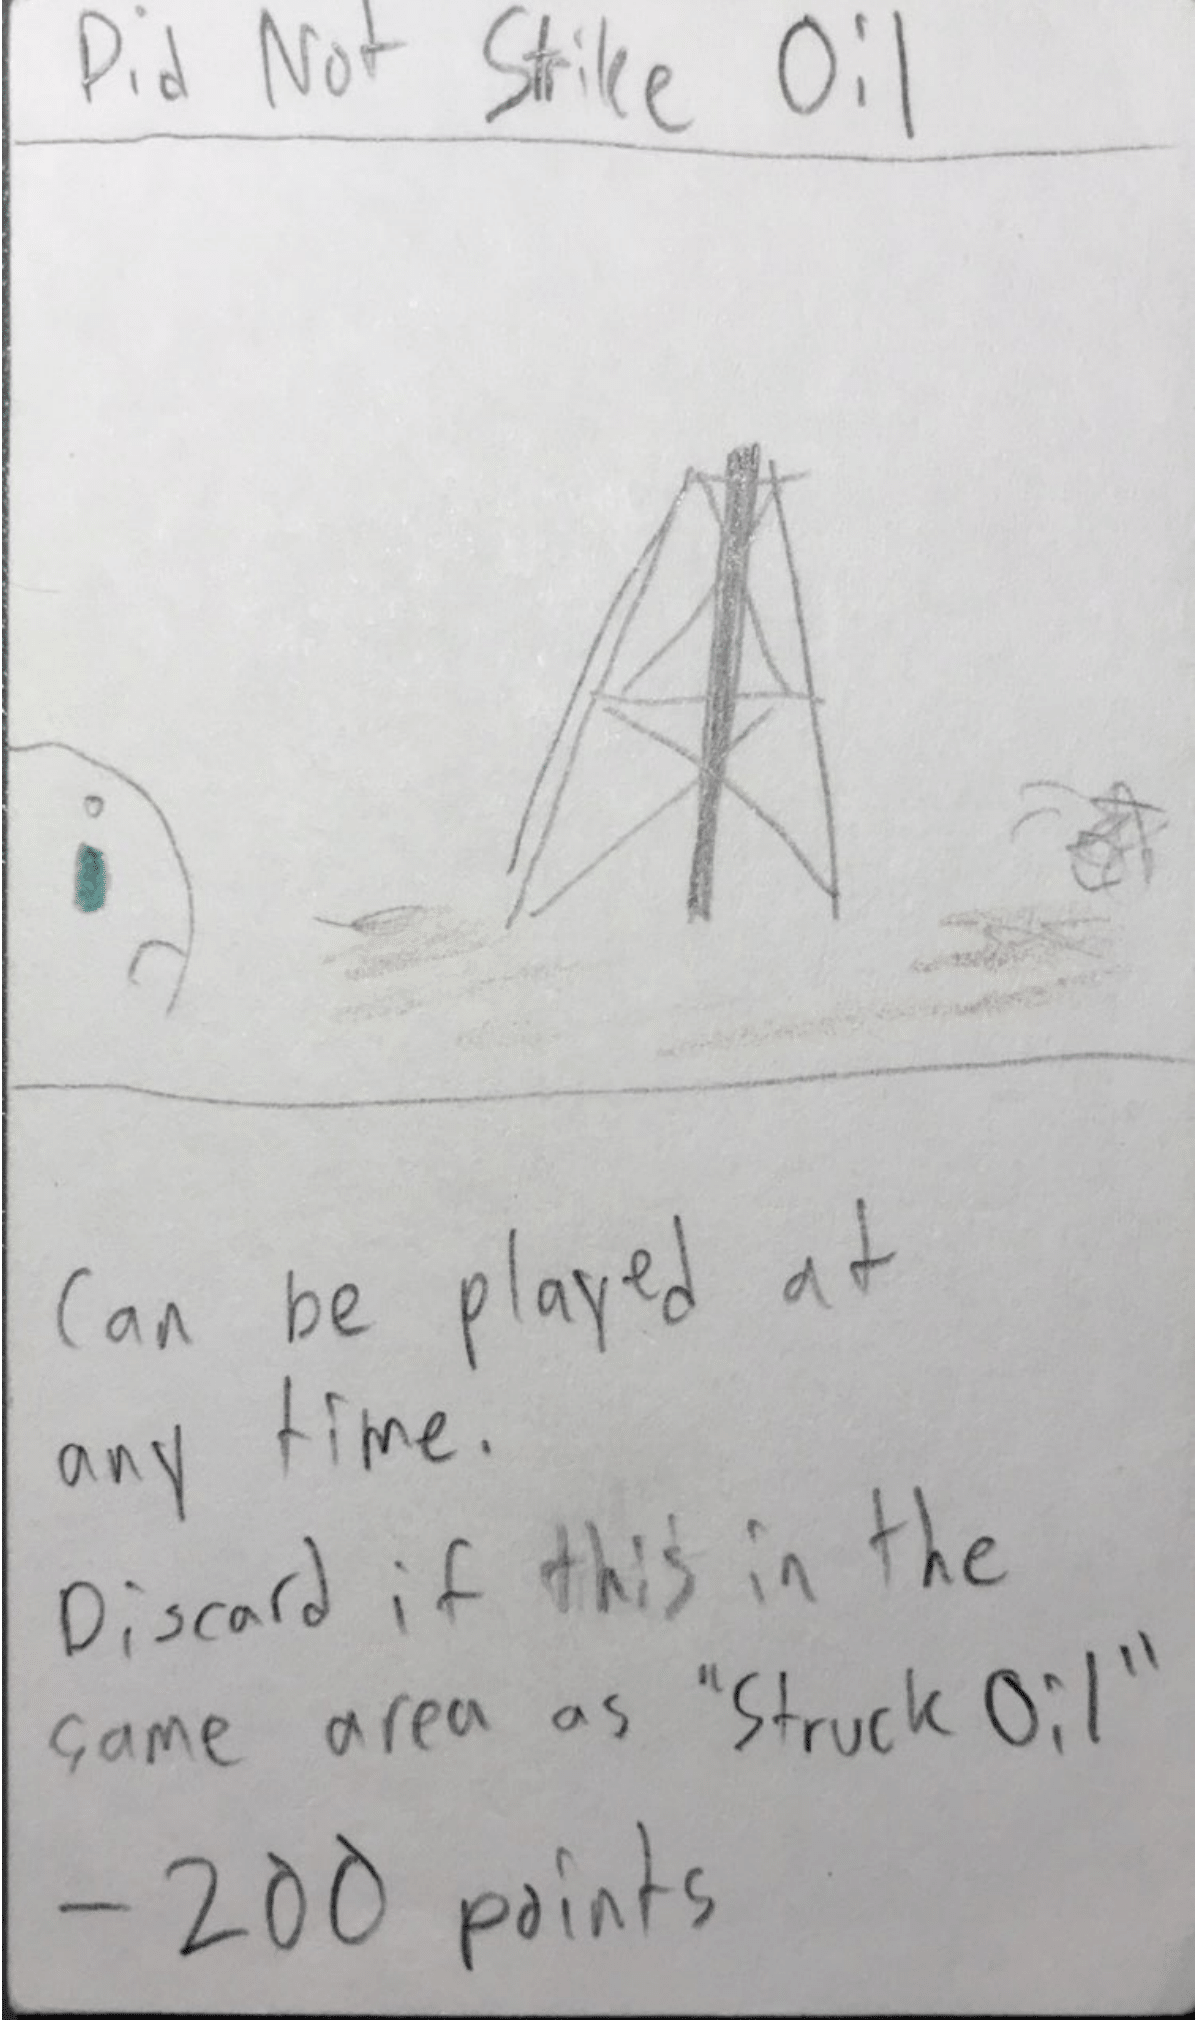 Did Not Strike Oil
Can be played at
any time.
Discard if this in the
same area as "Struck Oil"
- 200 points